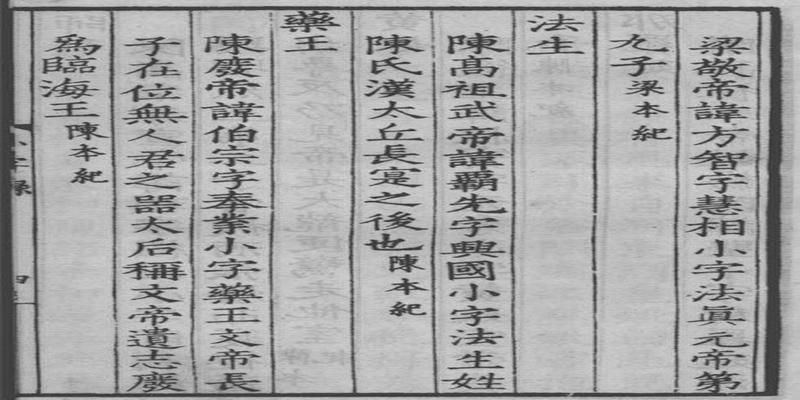 梁敬帝諱方智字慧相小字法眞元帝第
九子梁本紀
法生
陳髙祖武帝諱霸先字興國小字法生姓
陳氏漢太丘長寔之後也陳本紀
藥王
陳廢帝諱伯宗字奉業小字藥王文帝長
子在位無人君之器太后稱文帝遺志廢
爲臨海王陳本紀
小字録